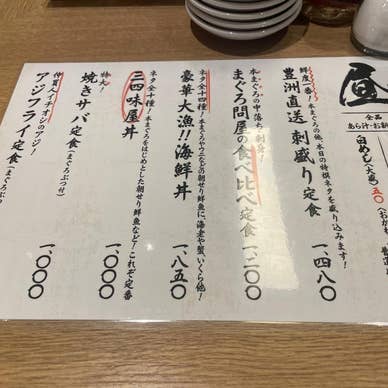 昼
全品
あら汁・お
白めし(大盛)五〇
(おかわ
鮮度一番!本まぐろの他、本日の特撰ネタを盛り込みます!
豊洲直送 刺盛り定食
一、四八〇
本まぐろの中落ち
まぐろ問屋の食べ比べ定食
一、二〇〇
ネタ全十四種!本まぐろやうになどの朝せり鮮魚に、海老や蟹、いくら他!
豪華大漁!!海鮮丼
一、八五〇
ネタ全十種!本まぐろをはじめとした朝せり鮮魚など!これぞ定番
三四味屋丼
一、〇〇〇
特大!
焼きサバ定食(まぐろぶつ付)
一、〇〇〇
仲買人イチオシのアジ!
アジフライ定食(まぐろぶ
一、〇〇〇